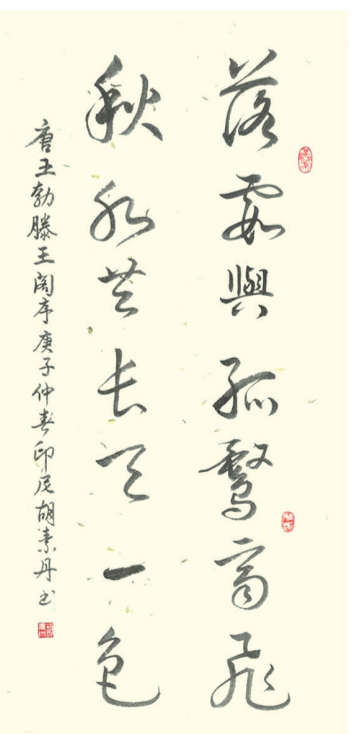 落霞與孤鶩齊飛
秋水共長天一色
唐王勃滕王阁序庚子仲春印尼胡素丹书